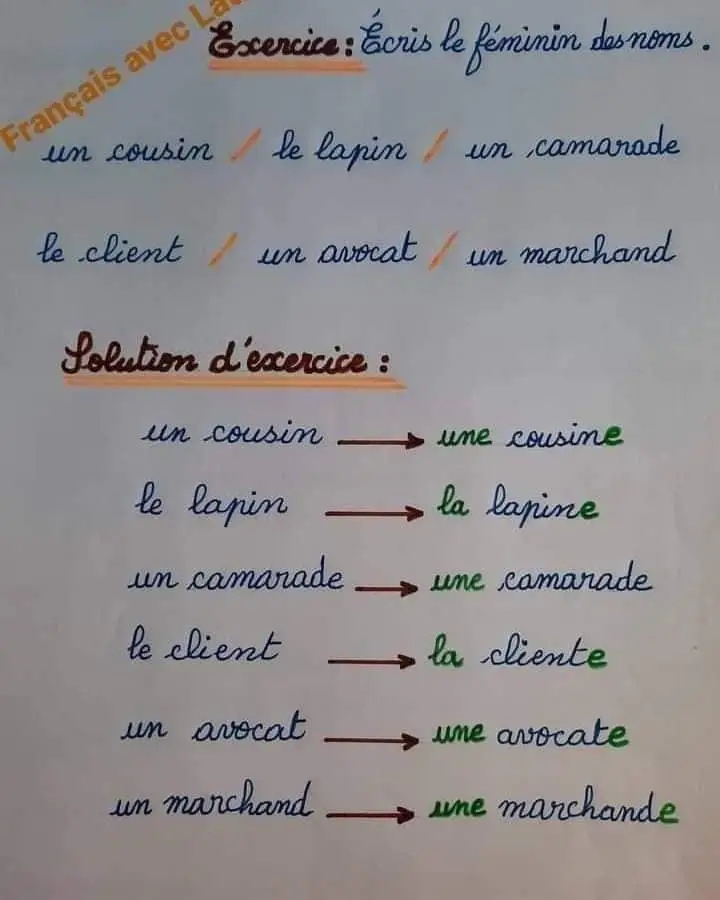 Français avec
Excercice : Écris le féminin des noms.
un cousin / le lapin / un camarade
le client / un avocat / un marchand
Solution d'excercice :
un cousin → une cousine
le lapin → la lapine
un camarade → une camarade
le client → la cliente
un avocat → une avocate
un marchand → une marchande